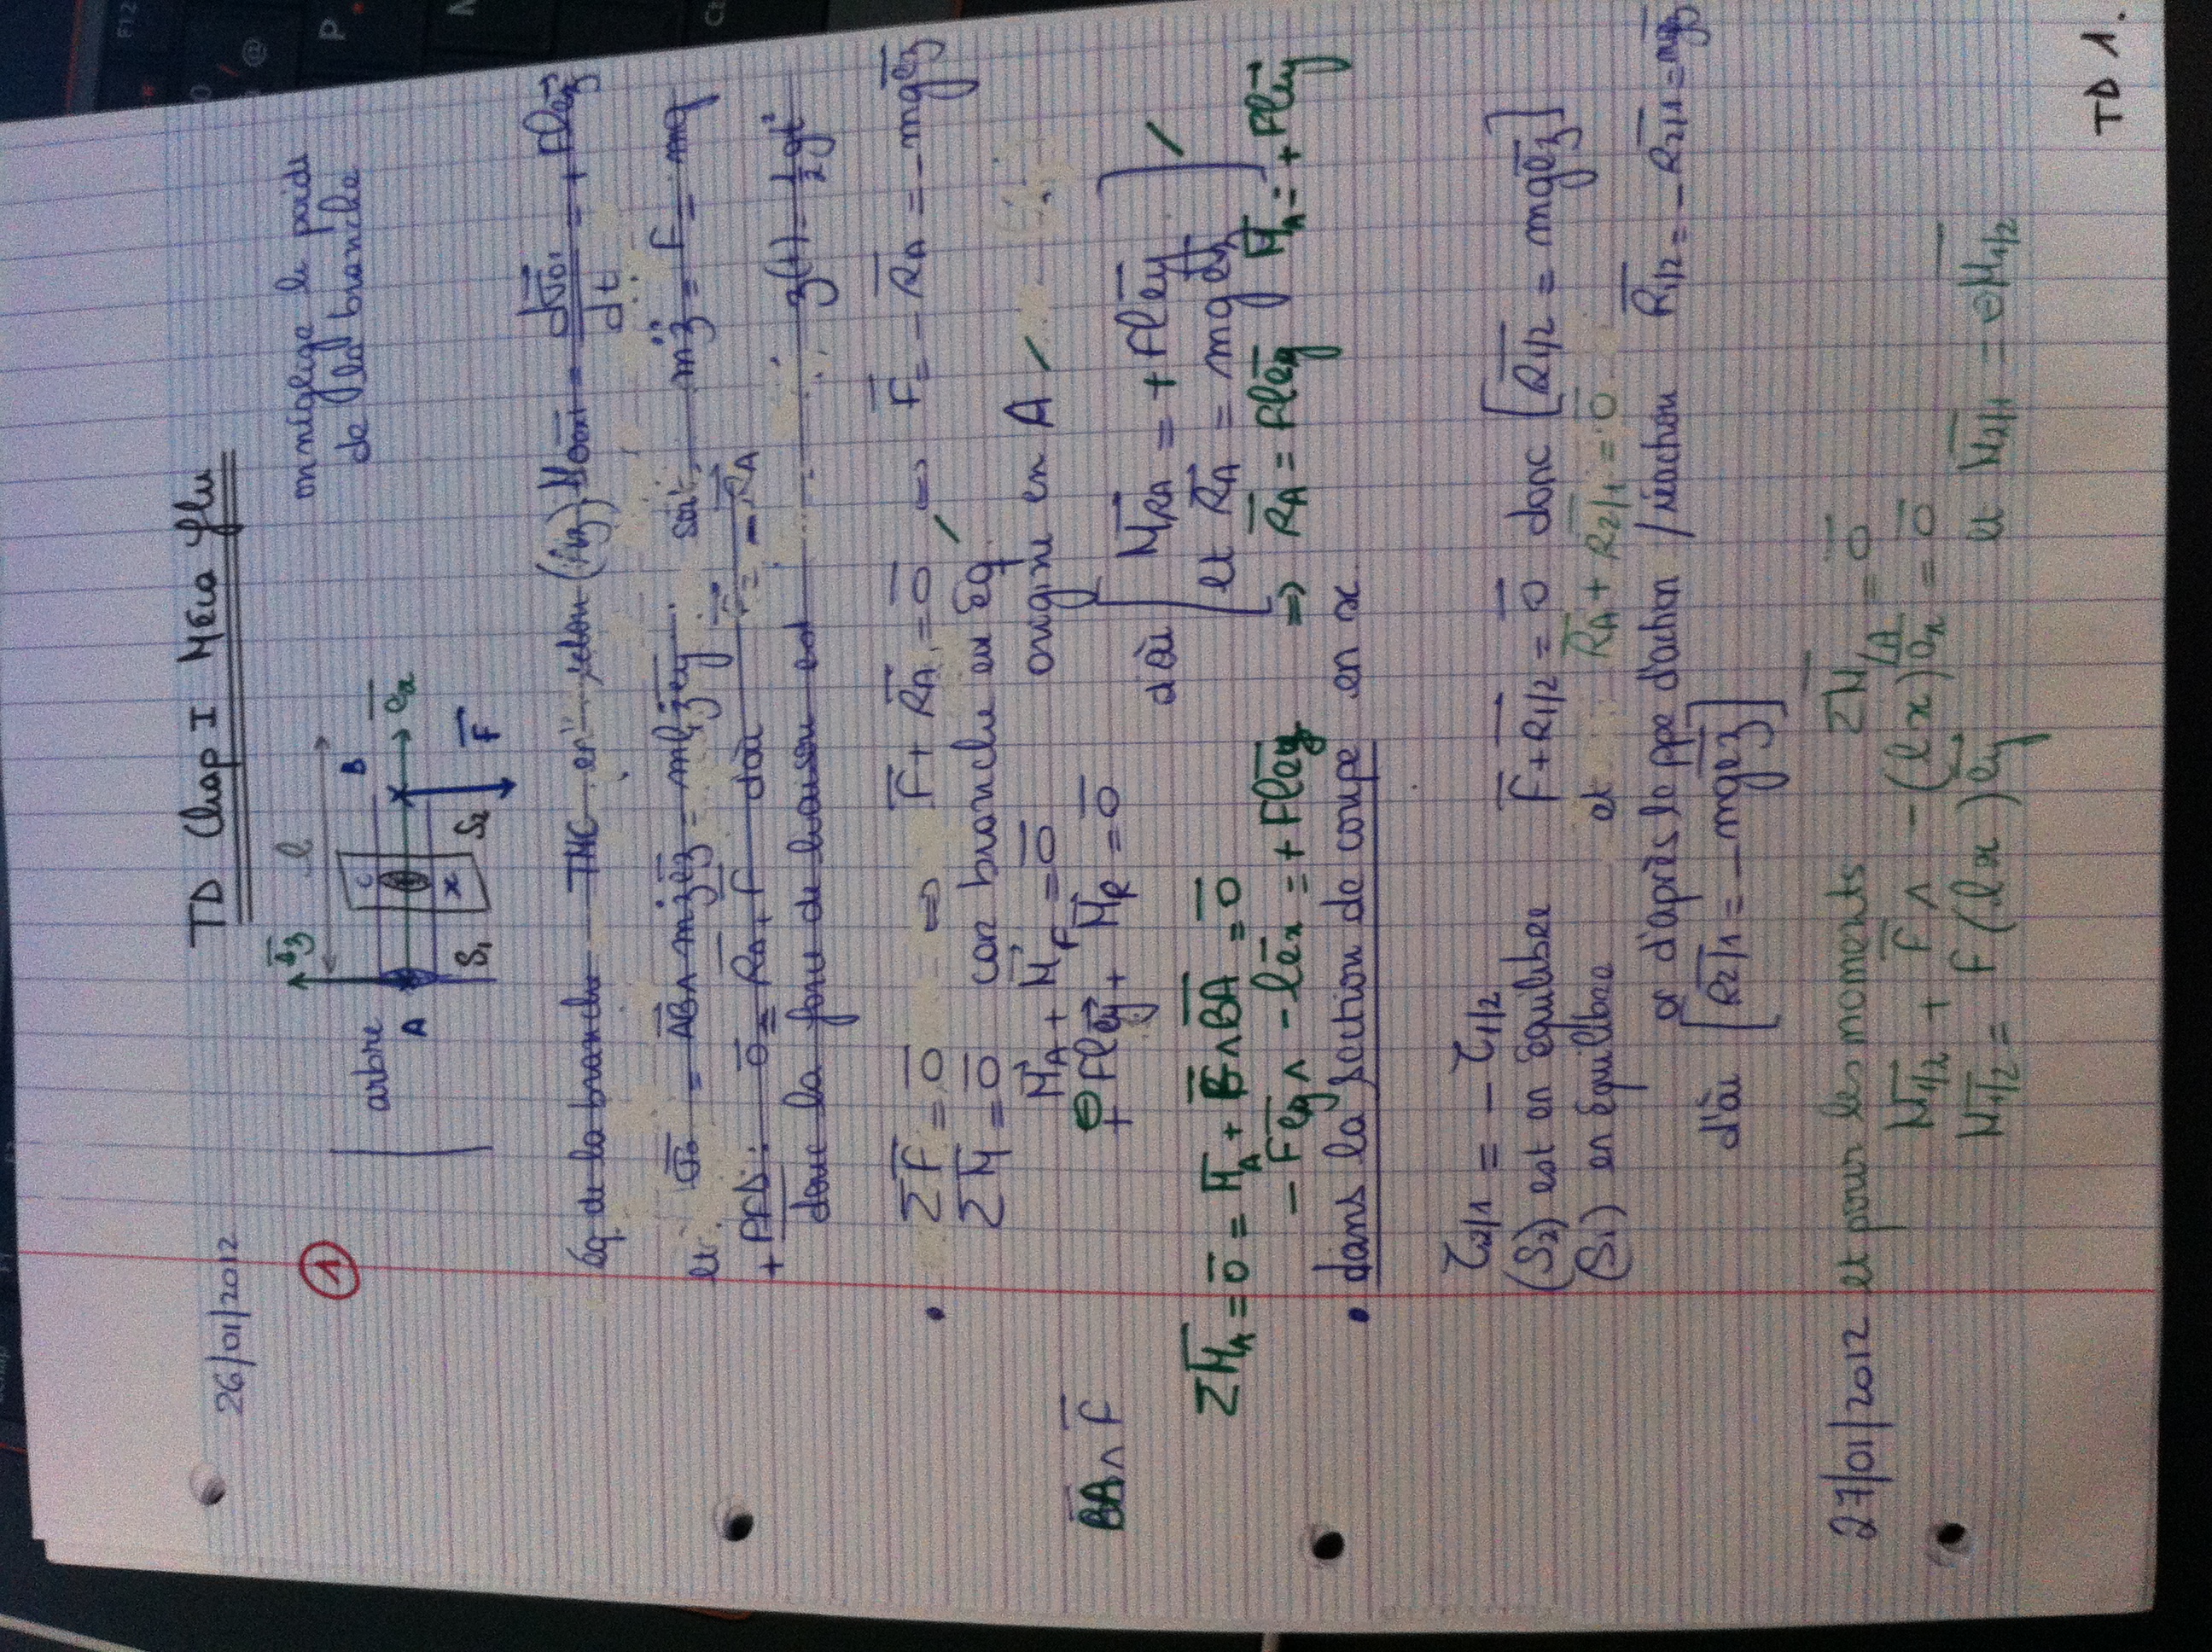 TD Chap I Méca flu
26/01/2012
①
l
on néglige le poids
de la branche
arbre
A
C
B
x
S₁
S₂
F⃗
Éq de la branche TMC selon
dt
AB ∧
soit
+ PFD : 0 = R_A + F d'où = - R_A
donc la force de liaison est z(t) = ½gt²
• ΣF = 0 ⇒ F + R_A = 0 ⇔ F = - R_A = - mg e_z
ΣM = 0 car branche en éq.
M_A + M_F = 0 origine en A
BA ∧ F
Fl e_y + M_R = 0
d'où [ M_RA = + Fl e_y
et R_A = mg e_z ]
ΣM_A = 0 = M_A + F ∧ BA = 0
- F e_y ∧ - l e_x = + Fl e_y ⇒ R_A = Fl e_y M_A = + Fl e_y
• dans la section de coupe en x
τ_2/1 = - τ_1/2
(S₂) est en équilibre F + R_1/2 = 0 donc [R_1/2 = mg e_z]
(S₁) en équilibre et R_A + R_2/1 = 0
or d'après le ppe d'action / réaction R_1/2 = - R_2/1 =
d'où [R_2/1 = - mg e_z]
27/01/2012 et pour les moments ΣM_/A = 0
M_1/2 + F ∧ - (l x) e_x = 0
M_1/2 = F (l x) e_y et M_2/1 = ⊖ M_1/2
TD 1.